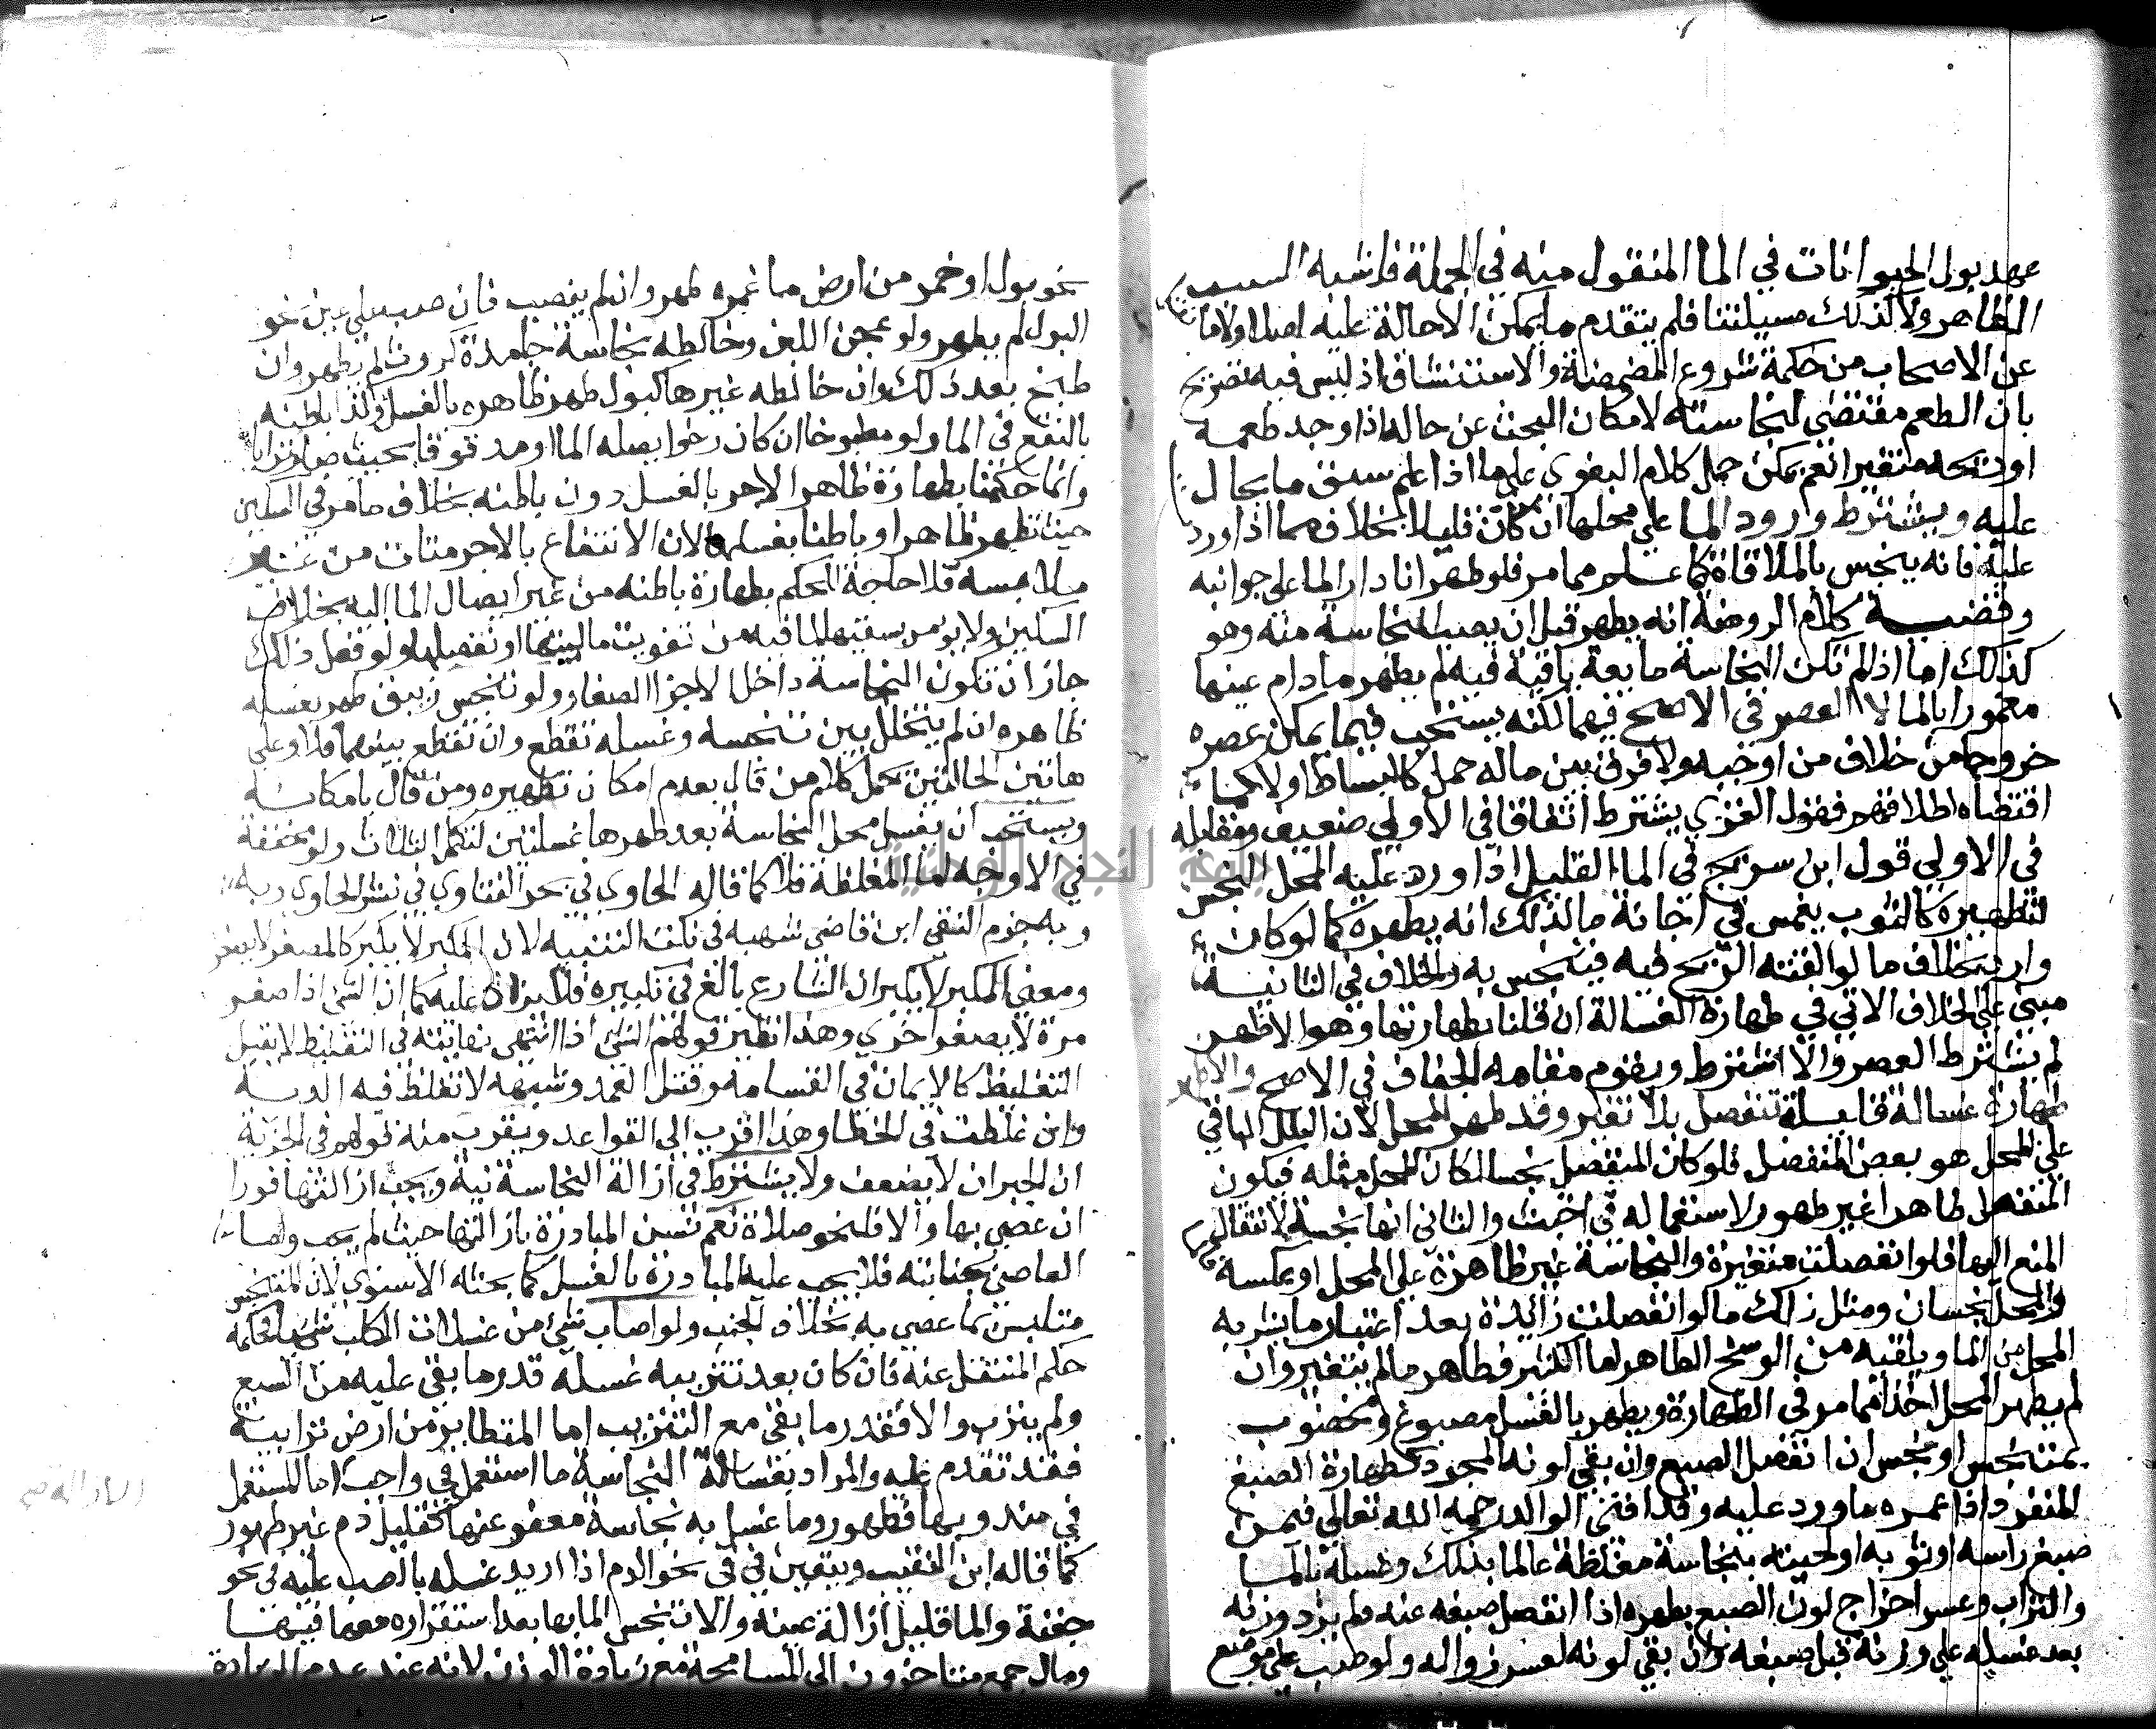 عهد بول الحيوانات في الما المنقول مينه في الجملة فاشبه السبب
الظاهر ولا كذلك مسيلتنا فلم يتقدم ما يمكن الاحالة عليه اصلا ولا ما
عن الاصحاب من حكمة شروع المضمضة والاستنشاق اذ ليس فيه تصريح
بان الطعم مقتضي لنجاسته لامكان البحث عن حاله اذا وجد طعمه
او ريحه متغيرا نعم يمكن حمل كلام البغوي على ما اذا علم سبق ما يحال
عليه ويشترط ورود الما على محلها ان كان قليلا بخلاف ما اذا ورد
عليه فانه ينجس بالملاقاة كما علم مما مر فلو طهر انا دار الما على جوانبه
وقضية كلام الروضة انه يطهر قبل ان يصب النجاسة منه وهو
كذلك اما اذا لم تكن النجاسة مايعة باقية فيه لم يطهر ما دام عينها
مغمورا بالما لا العصر في الاصح فيهما لكنه يستحب فيما يمكن عصره
خروجا من خلاف من اوجبه ولا فرق بين ماله خمل كالبساط او لا كما
اقتضاه اطلاقهم فقول الغزي يشترط اتفاقا في الاولي ضعيف ومقابله
في الاولي قول ابن سريج في الما القليل اذا ورد عليه المحل النجس
لتطهيره كالثوب يغمس في اجانة ما لذلك انه يطهره كما لو كان
واردا بخلاف ما لو القته الريح فيه فينجس به والخلاف في الثانية
مبني على الخلاف الاتي في طهارة الغسالة ان قلنا بطهارتها وهو الاظهر
لم يشترط العصر والا اشترط ويقوم مقامه الجفاف في الاصح والاظهر
طهارة غسالة قليلة تنفصل بلا تغير وقد طهر المحل لان البلل الباقي
على المحل هو بعض المنفصل فلو كان المنفصل نجسا لكان المحل مثله فيكون
المنفصل طاهرا غير طهور لاستعماله في خبث والثاني انها نجسة لانتقال
المنع اليها فلو انفصلت متغيرة والنجاسة غير ظاهرة على المحل او عكسه
والمحل نجسان ومثل ذلك ما لو انفصلت زائدة بعد اعتبار ما يشربه
المحل من الما ويلقيه من الوسخ الطاهر اما الكثير فطاهر ما لم يتغير وان
لم يطهر المحل اخذا مما مر في الطهارة ويطهر بالغسل مصبوغ ومخضوب
بمتنجس او نجس ان انفصل الصبغ وان بقي لونه المجرد كطهارة الصبغ
المنفرد اذا غمره ما ورد عليه وقد افتي الوالد رحمه الله تعالى فيمن
صبغ راسه او ثوبه او لحيته بنجاسة مغلظة عالما بذلك وغسله بالما
والتراب وعسر اخراج لون الصبغ بطهره اذا انفصل صبغه عنه ولم يزد وزنه
بعد غسله على وزنه قبل صبغه وان بقي لونه لعسر زواله ولو صب على موضع
نحو بول او خمر من ارض ما غمره طهر وان لم ينضب فان صب على عين نحو
البول لم يطهر ولو عجن اللبن وخالطه نجاسة جامدة كروث لم يطهر وان
طبخ بعد ذلك وان خالطه غيرها كبول طهر ظاهره بالغسل وكذا باطنه
بالنقع في الما ولو مطبوخا ان كان رخوا يصله الما او مدقوقا بحيث صار ترابا
وانما حكمنا بطهارة ظاهر الاجر بالغسل دون باطنه بخلاف ما مر في السكين
حيث تطهر ظاهرا وباطنا بغسلها لان الانتفاع بالاجر متات من غير
ملامسه فلا حاجة للحكم بطهارة باطنه من غير ايصال الما اليه بخلاف
السكين ولا يومر بسقيها لما فيه من تفويت ماليتها او نقصها ولو فعل ذلك
جاز ان تكون النجاسة داخل الاجزا الصغار ولو تنجس زيبق طهر بغسله
ظاهره ان لم يتخلل بين تنجسه وغسله تقطع وان تقطع بينهما فلا وعلى
هاتين الحالتين يحمل كلام من قال بعدم امكان تطهيره ومن قال بامكانه
ويستحب ان يغسل محل النجاسة بعد طهرها غسلتين لتكمل الثلاث ولو مخففة
في الاوجه اما المغلظة فلا كما قاله الجاوي في بحر الفتاوي في نشر الحاوي وبه
وبه جزم التقي ابن قاضي شهبه في نكت التنبيه لان المكبر لا يكبر كالمصغر لا يصغر
ومعني المكبر لا يكبر ان الشارع بالغ في تكبيره فلا يزاد عليه كما ان الشي اذا صغر
مرة لا يصغر اخري وهذا نظير قولهم الشي اذا انتهى نهايته في التغليظ لا يقبل
التغليظ كالايمان في القسامة وقتل العمد وشبهه لا تغلظ فيه الدية
وان غلظت في الخطا وهذا اقرب الى القواعد ويقرب منه قولهم في الجزية
ان الجبران لا يضعف ولا يشترط في ازالة النجاسة نية ويجب ازالتها فورا
ان عصي بها والا فلنحو صلاة نعم تسن المبادرة بازالتها حيث لم يجب واما
العاصي بجنابته فلا يجب عليه المبادرة بالغسل كما بحثه الاسنوي لان المتنجس
متلبس بما عصي به بخلاف الجنب ولو اصاب شي من غسلات الكلب شيا فحكمه
حكم المنتقل عنه فان كان بعد تتريبه غسله قدر ما بقي عليه من السبع
ولم يترب والا فقدر ما بقي مع التتريب اما المتطاير من ارض ترابية
فقد تقدم عليه والمراد بغسالة النجاسة ما استعمل في واجب اما المستعمل
في مندوبها فطهور وما غسل به نجاسة معفو عنها كقليل دم غير طهور
كما قاله ابن النقيب ويتعين في نحو الدم اذا اريد غسله بالصب عليه في نحو
جفنة والما قليل ازالة عينه والا تنجس الما بها بعد استقراره معها فيها
ومال جمع متاخرون الى المسامحة مع زيادة الوزن لانه عند عدم الزيادة
جامعة النجاح الوطنية